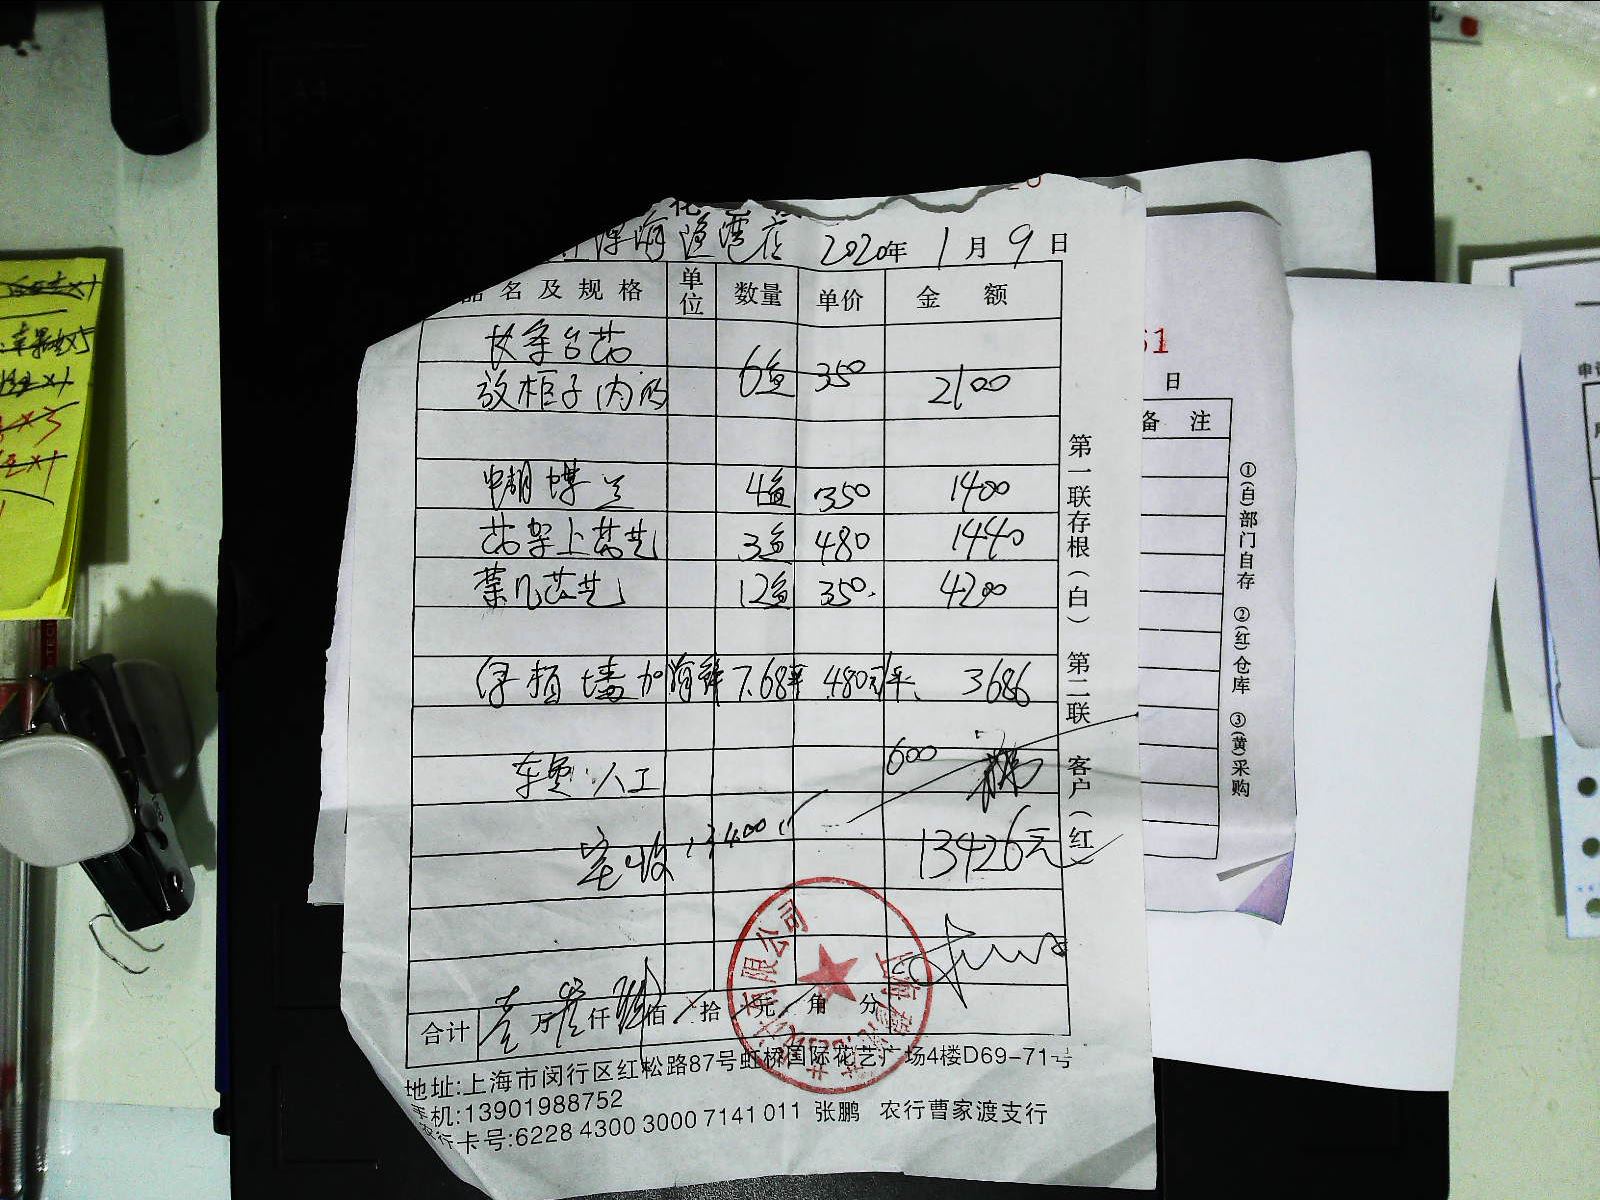 2020年 1月 9日
名及规格 单位 数量 单价 金额
台花 6盆 350 2100
放柜子内的
蝴蝶兰 4盆 350 1400
花架上花艺 3盆 480 1440
茶几花艺 12盆 350 4200
绿植墙 7.68平 480元/平 3686
车费 人工 600
实收 13400 13426元
合计 壹万叁仟肆佰 拾 元 角 分
地址:上海市闵行区红松路87号虹桥国际花艺广场4楼D69-71号
手机:13901988752
农行卡号:6228 4300 3000 7141 011 张鹏 农行曹家渡支行
第一联存根(白) 第二联 客户(红)
有限公司
61
日
备注
①(白)部门自存 ②(红)仓库 ③(黄)采购